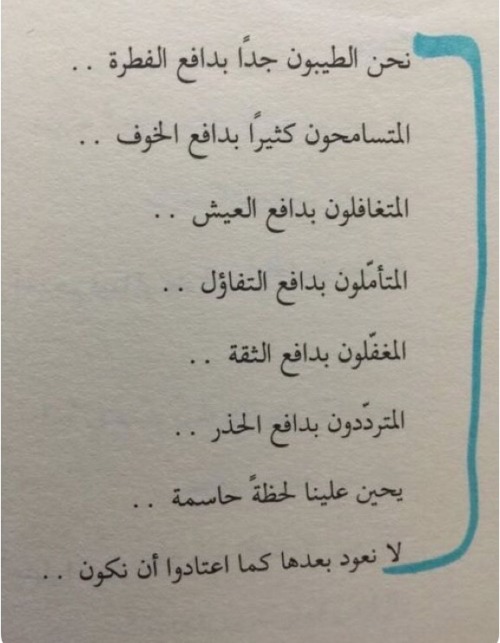 نحن الطيبون جدًا بدافع الفطرة . .
المتسامحون كثيرًا بدافع الخوف . .
المتغافلون بدافع العيش . .
المتأمّلون بدافع التفاؤل . .
المغفّلون بدافع الثقة . .
المتردّدون بدافع الحذر . .
يحين علينا لحظةً حاسمة . .
لا نعود بعدها كما اعتادوا أن نكون . .